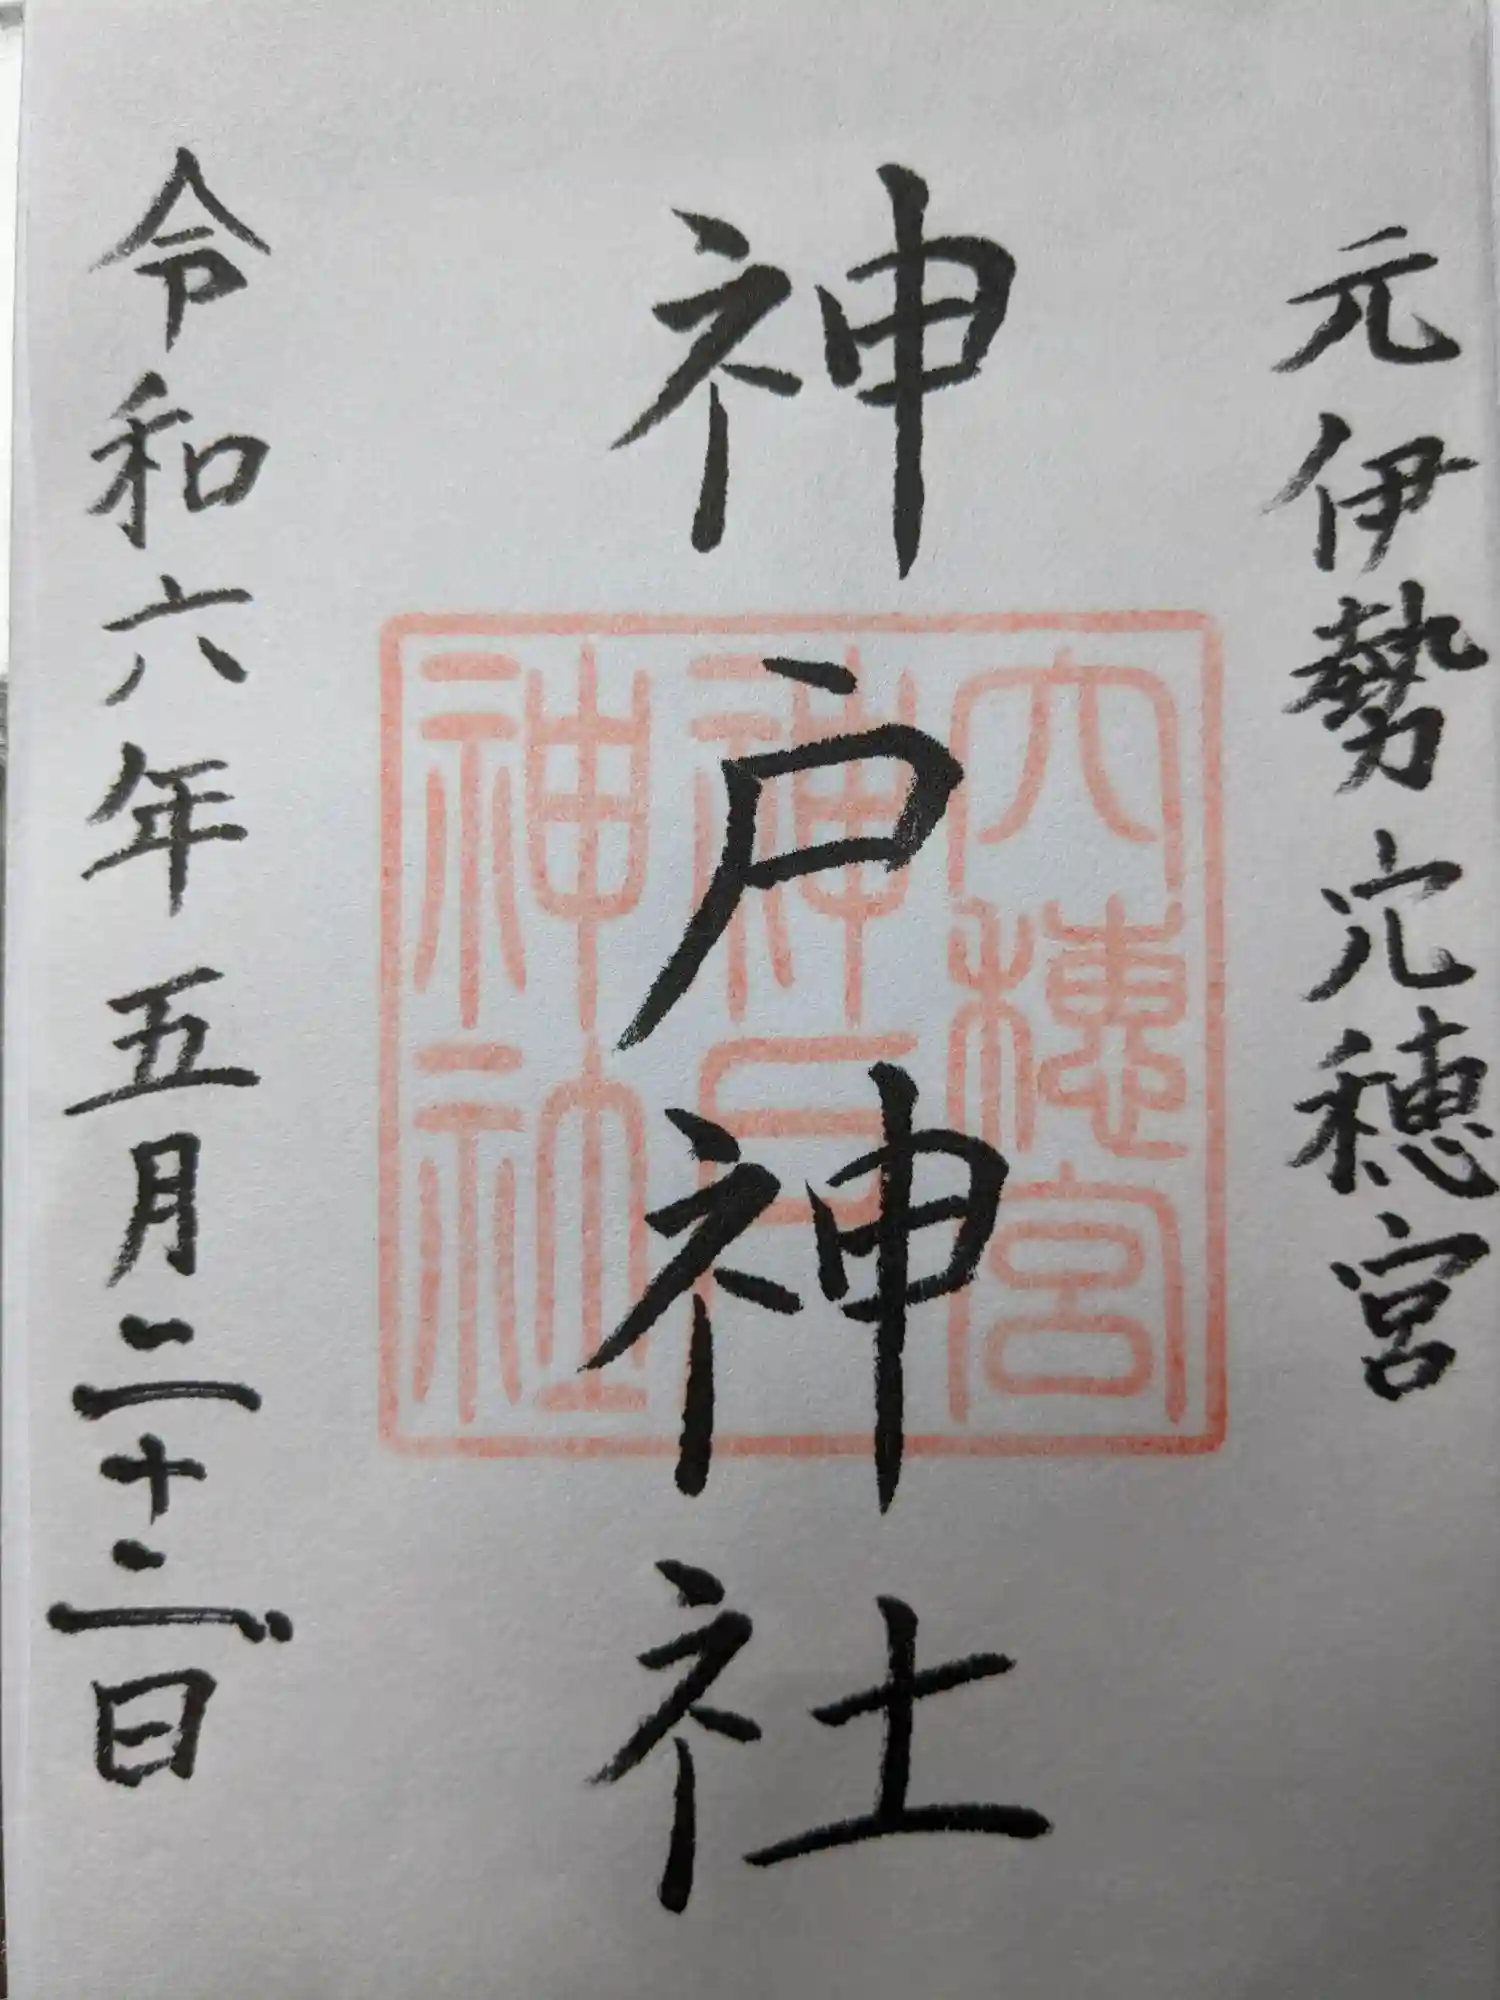 元伊勢穴穂宮
神戸神社
令和六年五月二十二日
穴穂宮
神戸
神社